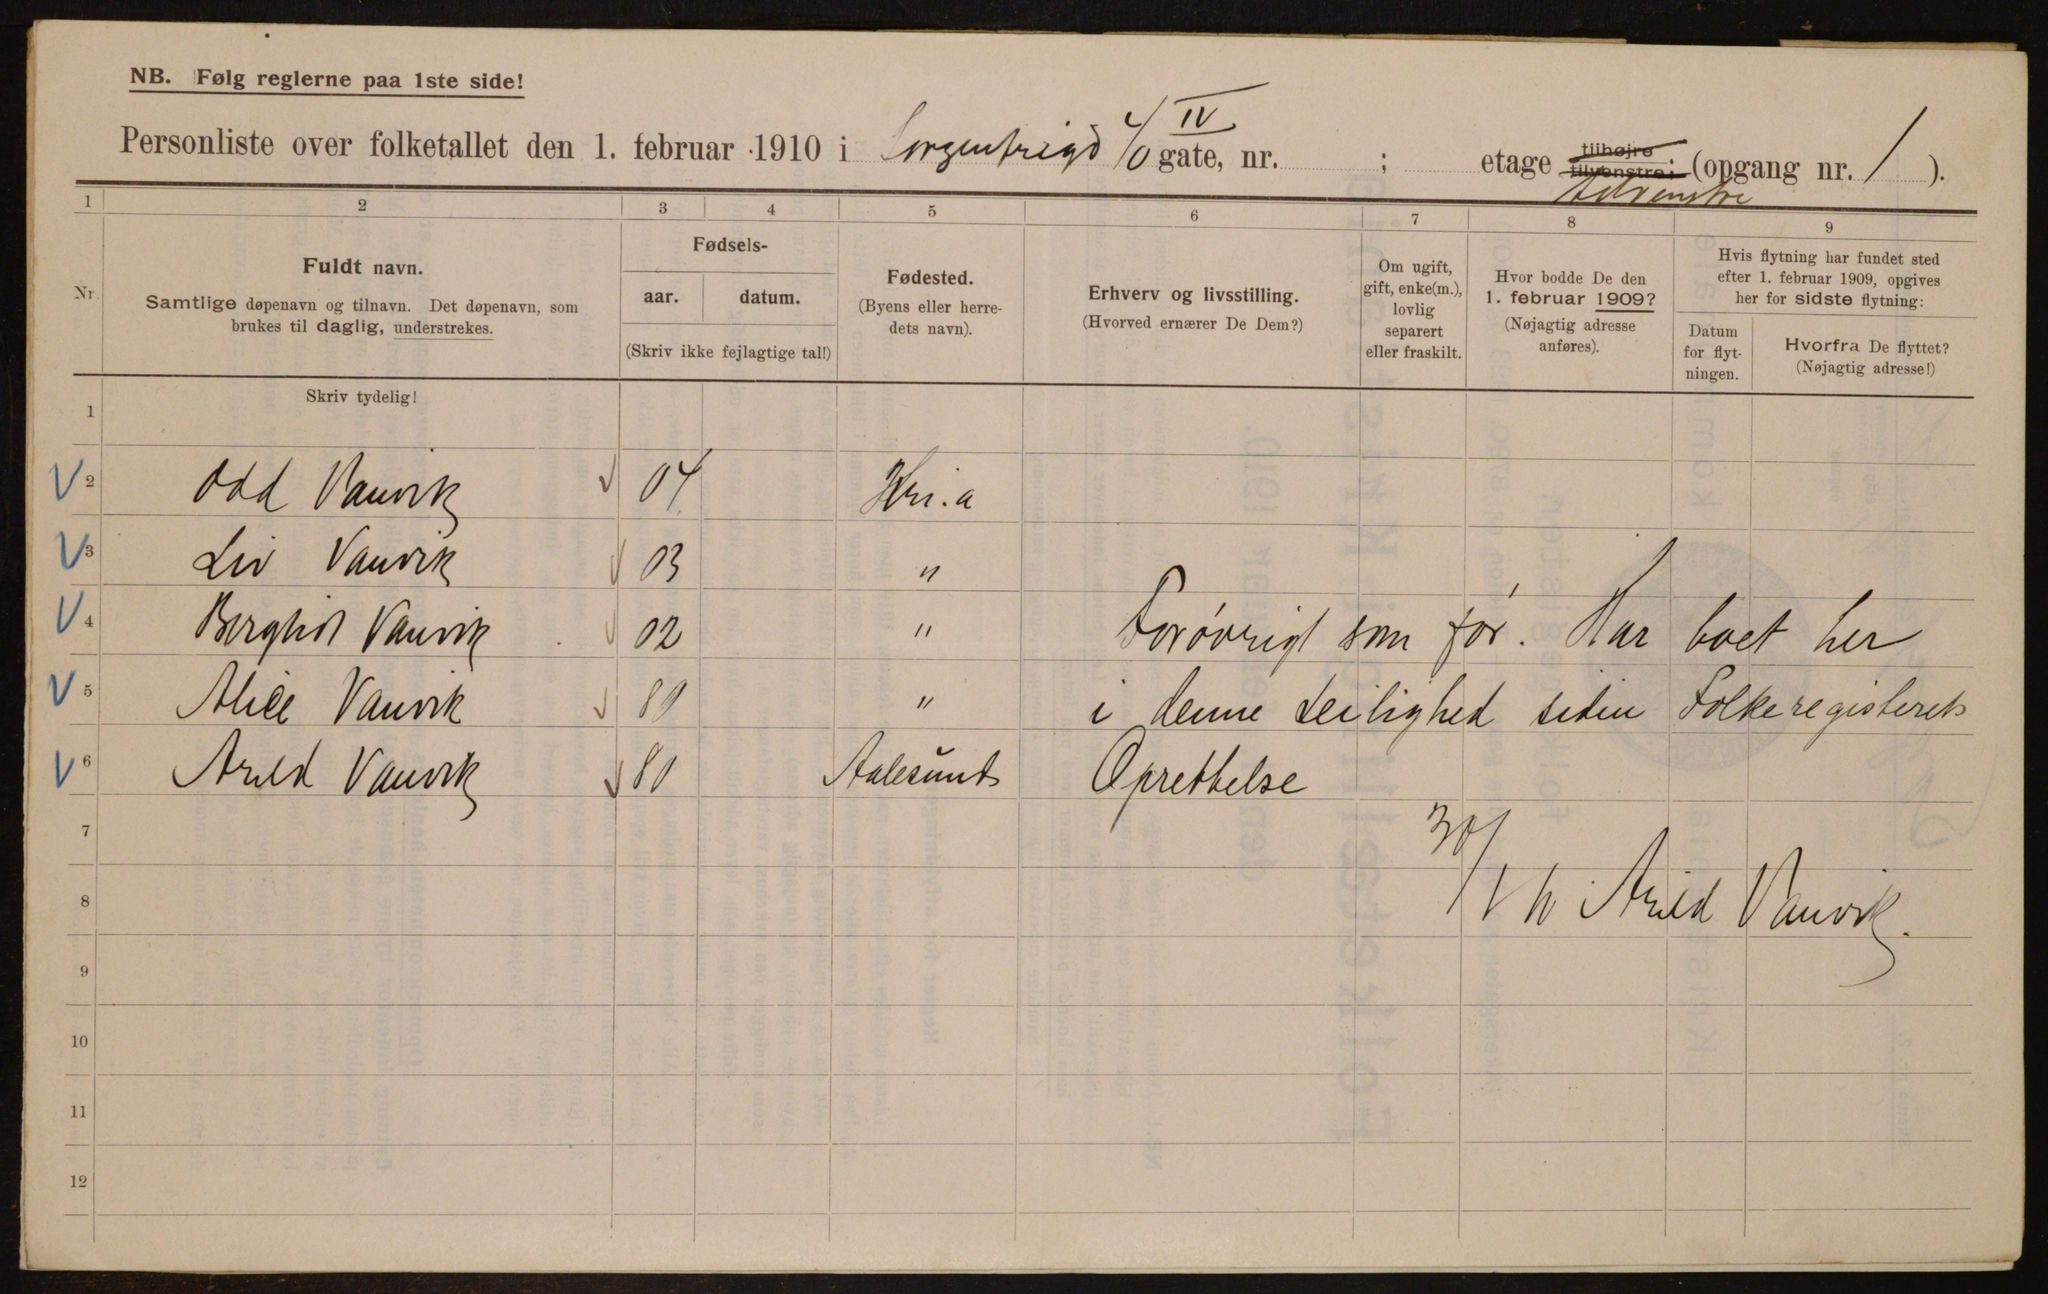 NB. Følg reglerne paa 1ste side!
Personliste over folketallet den 1. februar 1910 i Sorgenfrigd 4/0 IV gate, nr. ; etage tilhøjre tilvenstre; (opgang nr. 1 ).
tilvenstre
1 2 3 4 5 6 7 8 9
Nr.
Fuldt navn.
Samtlige døpenavn og tilnavn. Det døpenavn, som
brukes til daglig, understrekes.
Fødsels-
aar. datum.
(Skriv ikke fejlagtige tal!)
Fødested.
(Byens eller herre-
dets navn).
Erhverv og livsstilling.
(Hvorved ernærer De Dem?)
Om ugift,
gift, enke(m.),
lovlig
separert
eller fraskilt.
Hvor bodde De den
1. februar 1909?
(Nøjagtig adresse
anføres).
Hvis flytning har fundet sted
efter 1. februar 1909, opgives
her for sidste flytning:
Datum
for flyt-
ningen.
Hvorfra De flyttet?
(Nøjagtig adresse!)
Skriv tydelig!
1
2 Odd Vanvik 04 Kri.a
3 Liv Vanvik 03 "
4 Borghid Vanvik 02 " Forøvrigt som før. Har boet her
5 Alice Vanvik 80 " i denne Leilighed siden Folkeregisterets
6 Arild Vanvik 80 Aalesund Oprettelse
7
8 30/1 10 Arild Vanvik.
9
10
11
12